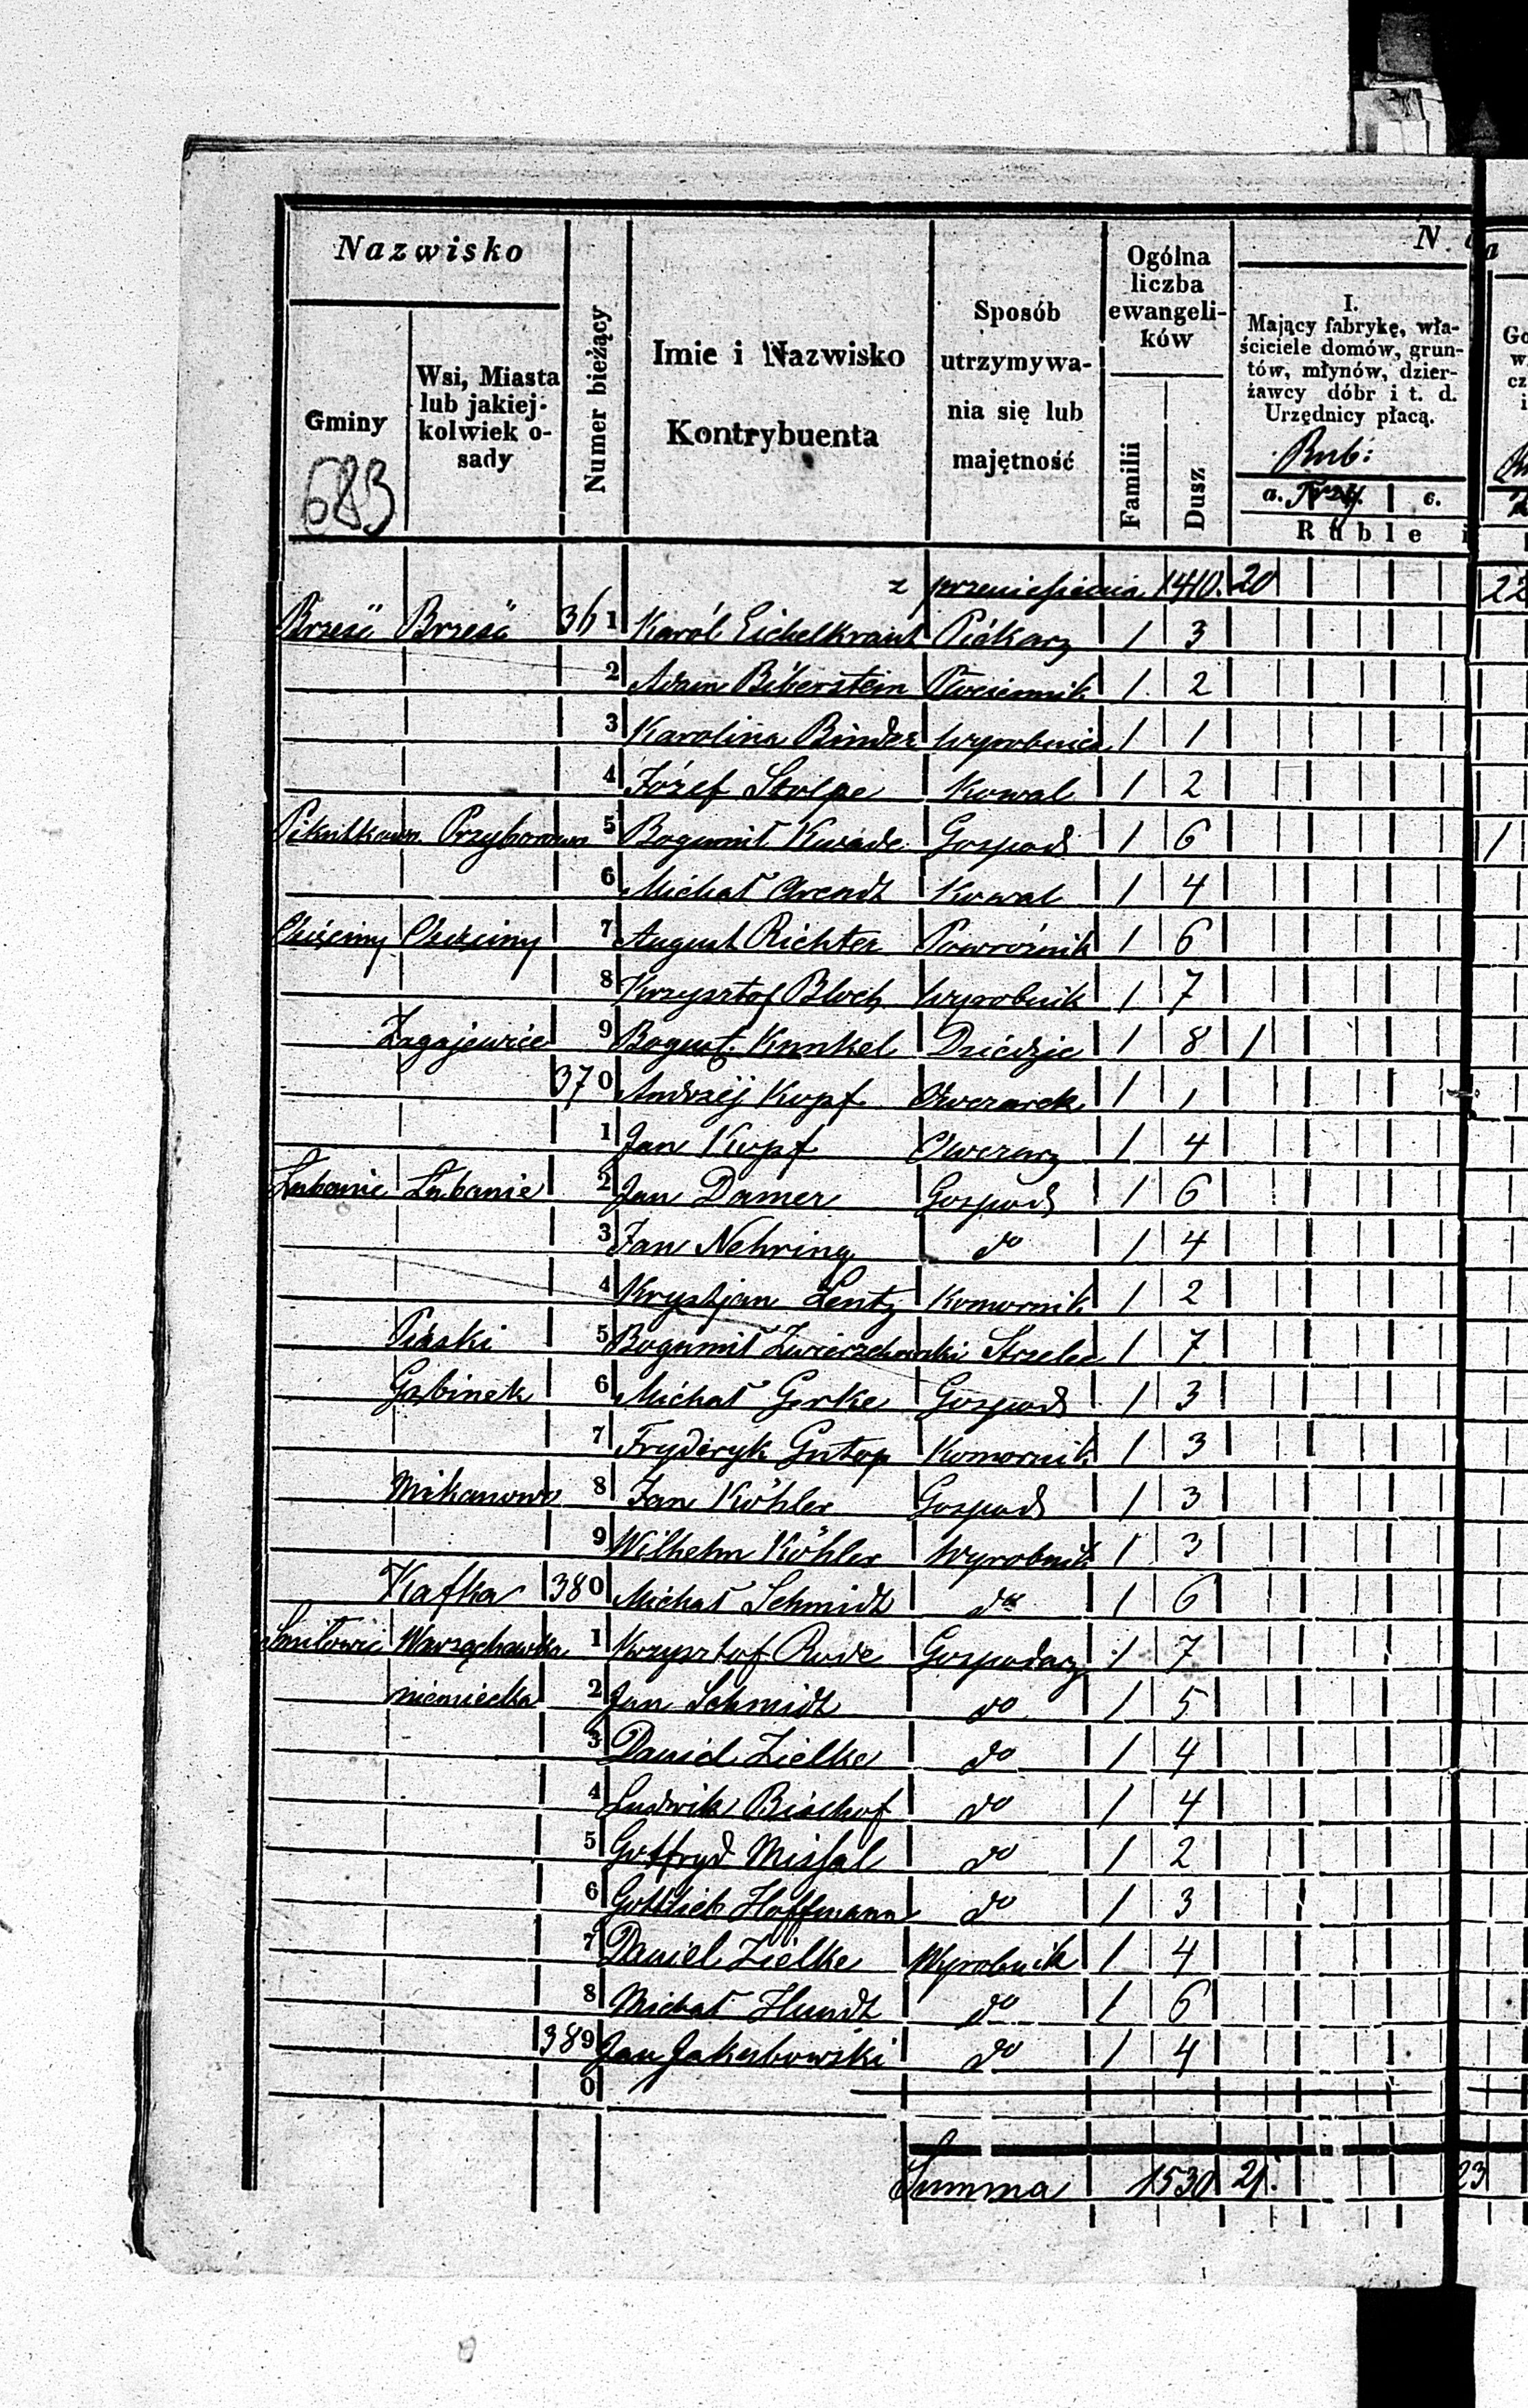 Nazwisko
Gminy
683
Wsi, Miasta
lub jakiej-
kolwiek o-
sady
Numer bieżący
Imie i Nazwisko
Kontrybuenta
Sposób
utrzymywa-
nia się lub
majętność
Ogólna
liczba
ewangeli-
ków
Familii
Dusz
N
I.
Mający fabrykę, wła-
ściciele domów, grun-
tów, młynów, dzier-
żawcy dóbr i t. d.
Urzędnicy płacą.
Rub:
a. Trzy. c.
Ruble i
z przeniesienia 1410. 20 22
Brześć Brześć 36 1 Karól Eichelkraut Piekarz 1 3
2 Adam Biberstein 1 2
3 Karolina Binder Wyrobnica 1 1
4 Józef Stolpe Kowal 1 2
Pikutkowo Przyborowo 5 Bogumił Kwade Gospod 1 6 1
6 Michał Arendt Kowal 1 4
7 August Richter Powroźnik 1 6
8 Krzysztof Bloch Wyrobnik 1 7
Zagajewice 9 Bogusł. Kunkel Dziedzic 1 8 1
370 Andrzéj Kopf Owczarek 1 1
1 Jan Kopf Owczarz 1 4
Lubanie Lubanie 2 Jan Damer Gospod 1 6
3 Jan Nehring do 1 4
4 Krystjan Lentz Komornik 1 2
Piaski 5 Bogumił Zwierzchowski Strzelec 1 7
Gąbinek 6 Michał Gerke Gospod 1 3
7 Fryderyk Gutop Komornik 1 3
Mikanowo 8 Jan Köhler Gospod 1 3
9 Wilhelm Köhler Wyrobnik 1 3
Kafka 380 Michał Schmidt do 1 6
Smiłowic Warząchewka 1 Krzysztof Rode Gospodarz 1 7
niemiecka 2 Jan Schmidt do 1 5
3 Daniel Zielke do 1 4
4 Ludwik Bischof do 1 4
5 Gottfryd Missal do 1 2
6 Gottlieb Hoffmann do 1 3
7 Daniel Zielke Wyrobnik 1 4
8 Michał Hundt do 1 6
389 Jan Jakubowski do 1 4
0
Summa 1530 21. 23